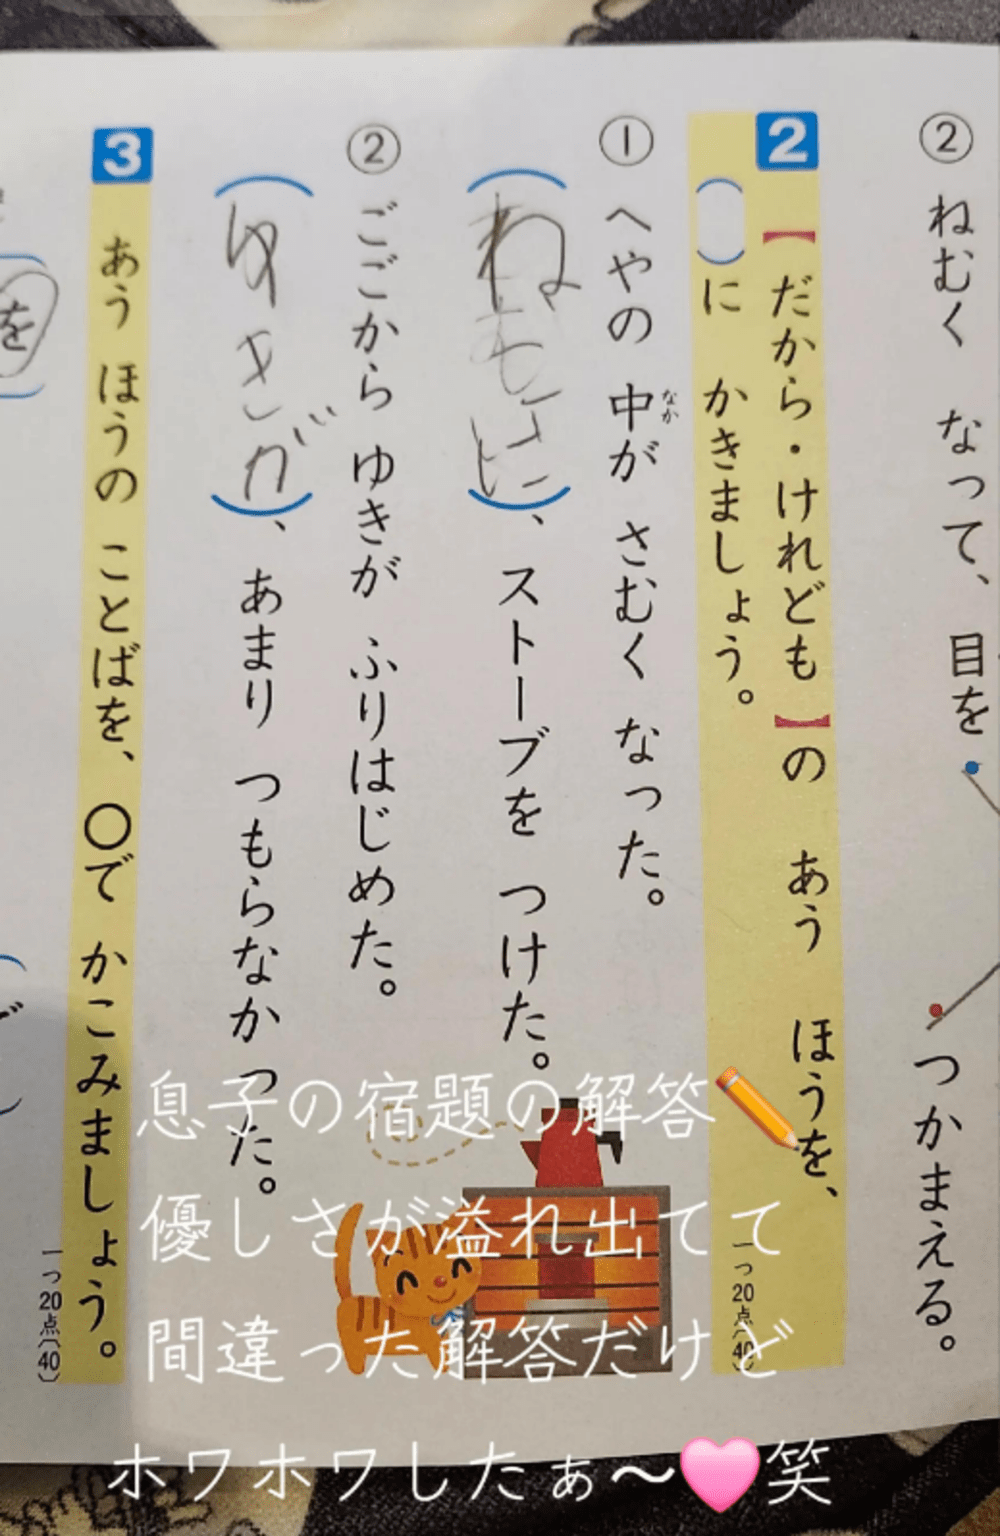 ② ねむく なって、 目を
つかまえる。
2 【だから・けれども】の あう ほうを、
( )に かきましょう。
一つ20点(40)
① へやの 中が さむく なった。
なか
( )、ストーブを つけた。
② ごごから ゆきが ふりはじめた。
(ゆきが)、あまり つもらなかった。
3 あう ほうの ことばを、○で かこみましょう。
一つ20点(40)
を
息子の宿題の解答✏️
優しさが溢れ出てて
間違った解答だけど
ホワホワしたぁ〜🩷笑